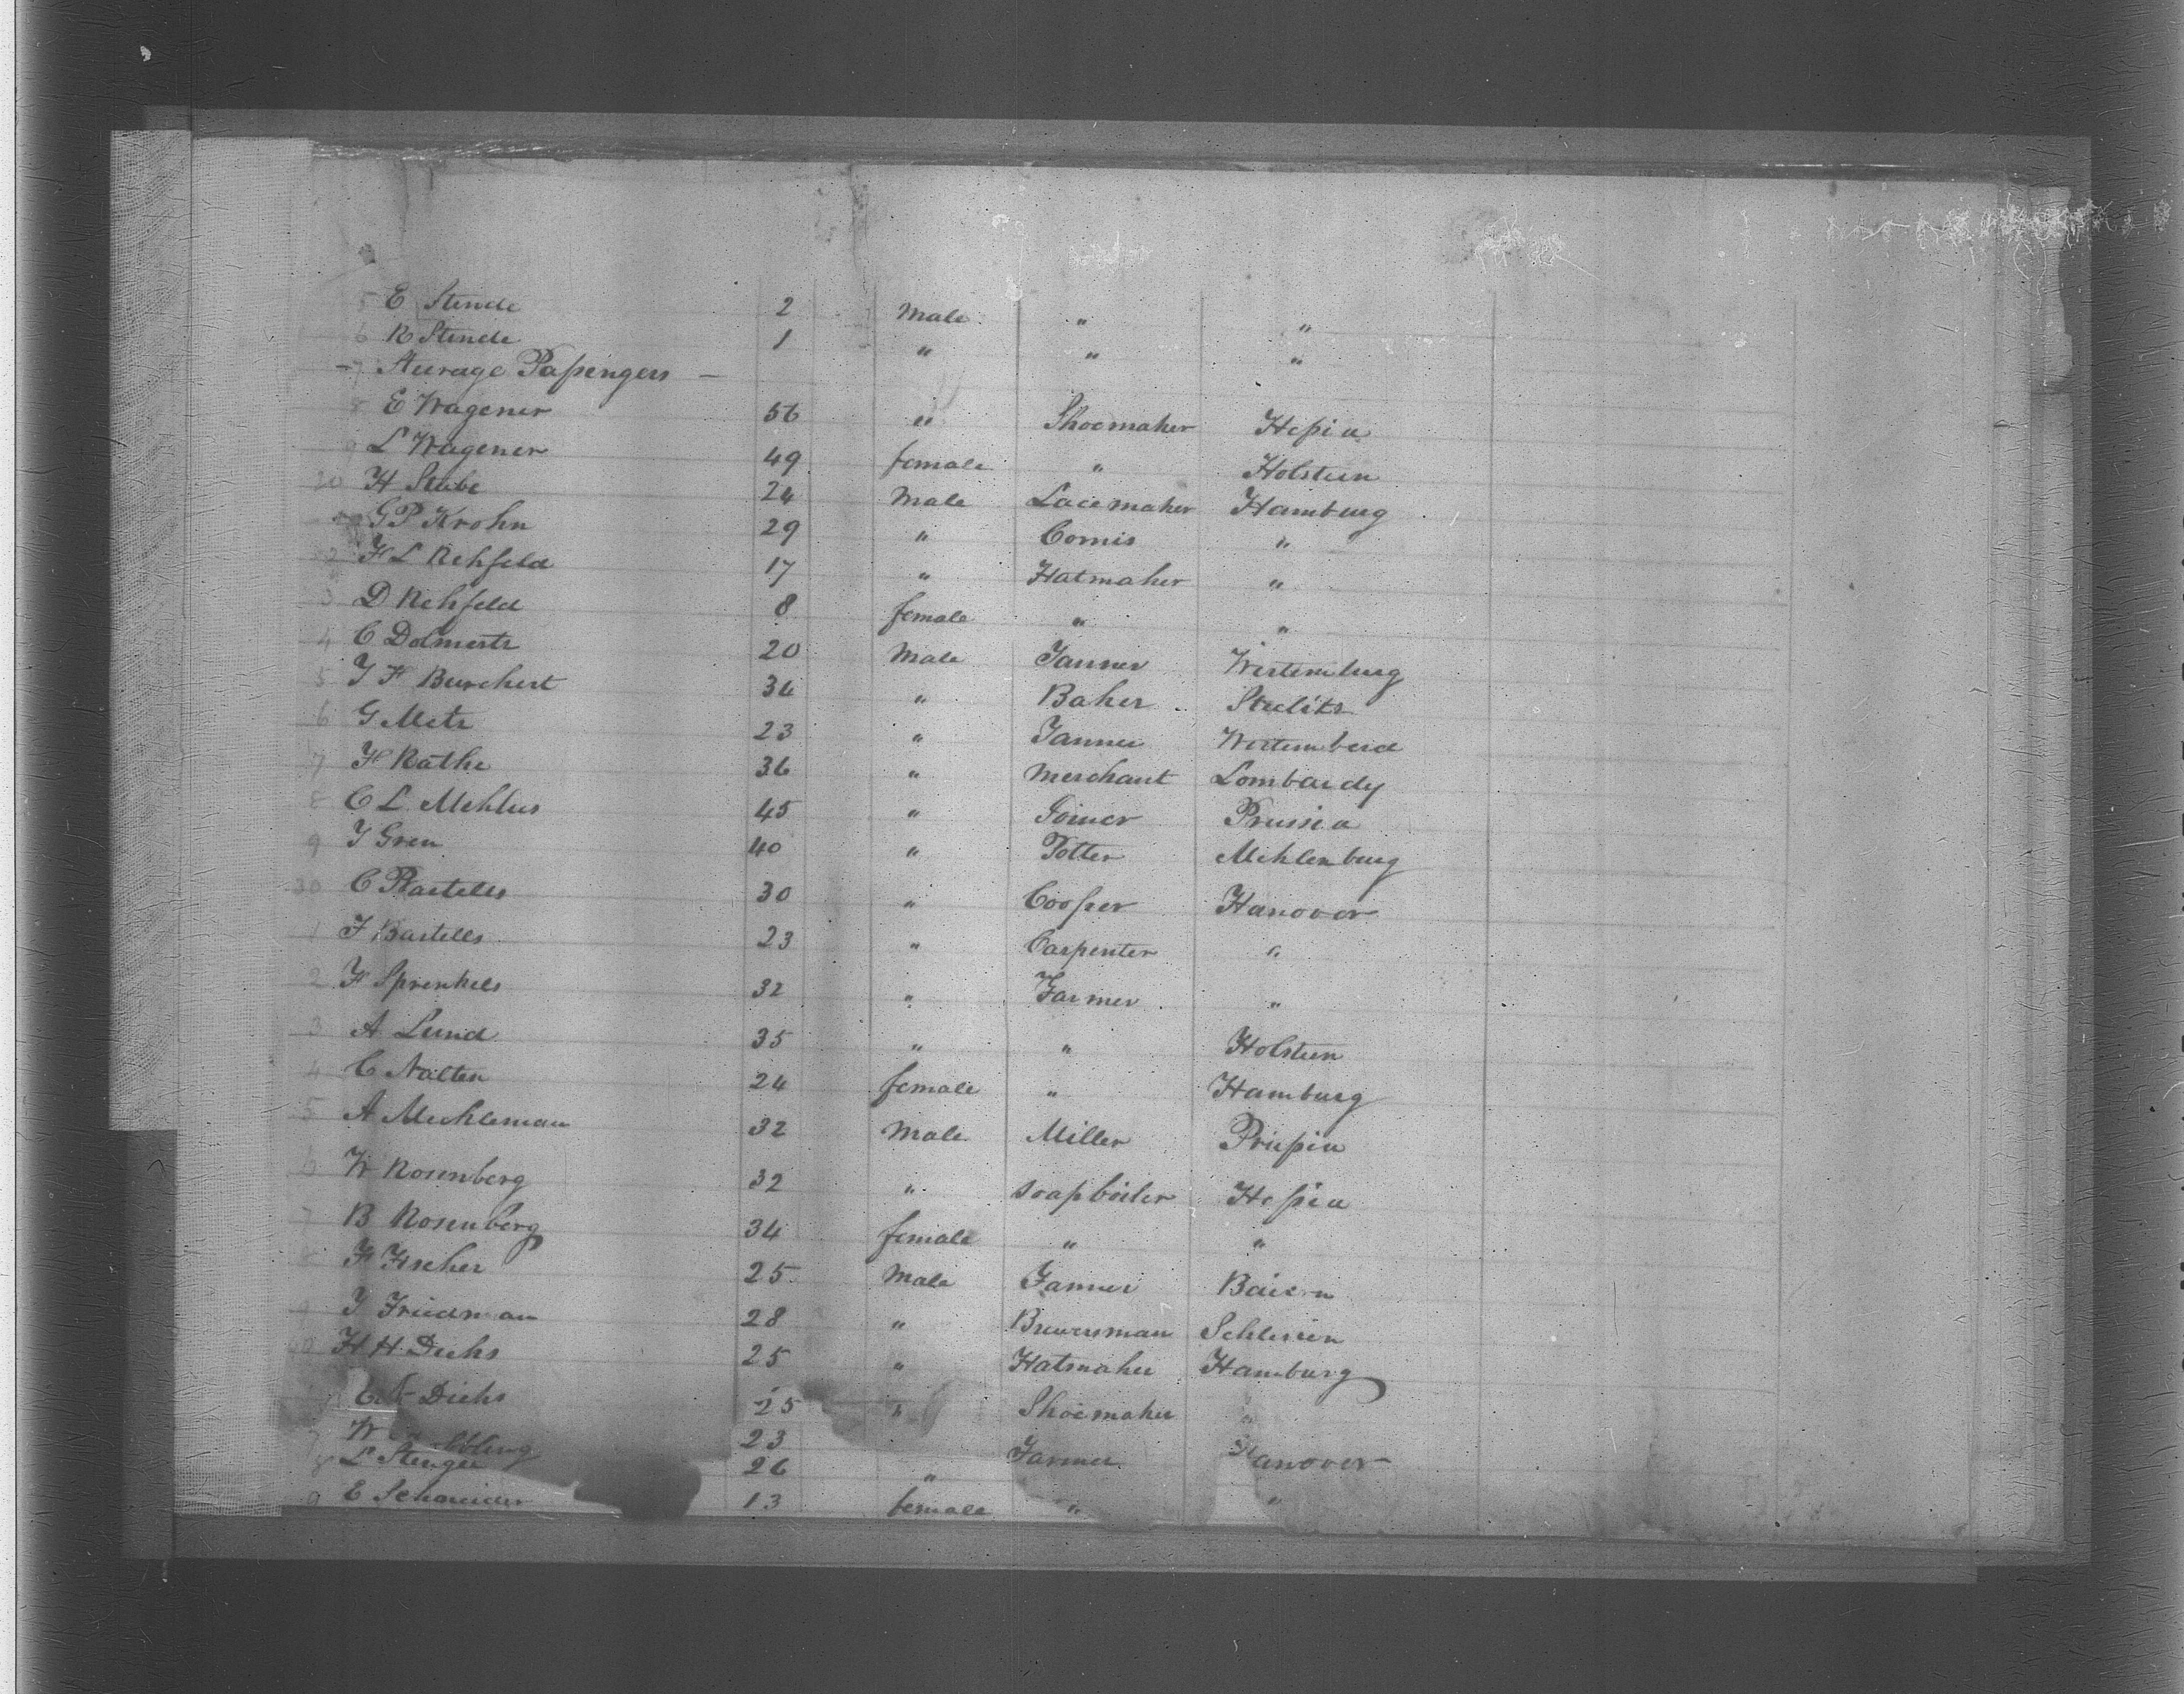 5 E Stende 2 Male " "
6 R Stende 1 " " "
- 7 Steerage Passengers -
8 E Wagener 56 " Shoemaker Hessia
9 L Wagener 49 female " Holstein
20 H Stube 24 Male Lacemaker Hamburg
GP Krohn 29 " Comis "
2 H L Rehfeld 17 " Hatmaker "
3 D Rehfeld 8 female " "
4 C Dolmertz 20 Male Tanner Wirtemburg
5 J H Burchert 36 " Baker Strelitz
6 G Metz 23 " Tanner Wirtemberd
7 H Rathe 36 " Merchant Lombardy
8 C L Mehlus 45 " Joiner Prussia
9 J Gren 40 " Potter Mehlenburg
30 C Bartells 30 " Cooper Hanover
1 F Bartells 23 " Carpenter "
2 H Sprenkels 32 " Farmer "
3 A Lund 35 " " Holstein
4 C Nolten 24 female " Hamburg
5 A Muhleman 32 Male Miller Prussia
6 W Rosenberg 32 " soapboiler Hessia
7 B Rosenberg 34 female " "
F Fischer 25 Male Farmer Baiern
9 J Friedman 28 " Brewersman Schlesien
40 H H Dieks 25 " Hatmaker Hamburg
Dieks 25 " Shoemaker "
W 23 Farmer Hanover
8 L Stenger 26 " "
9 E Schneider 13 female "